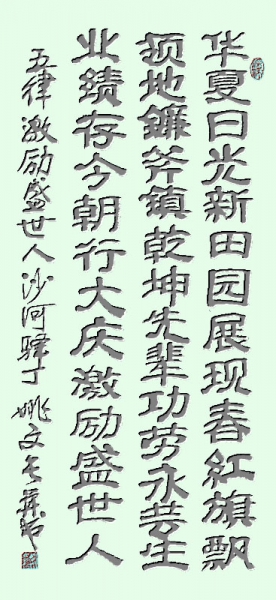 华夏日光新田园展现春紅旗飘
顶地鐮斧镇乾坤先辈功劳永苍生
业績存今朝行大庆激励盛世人
五律激励盛世人沙河驿 姚文